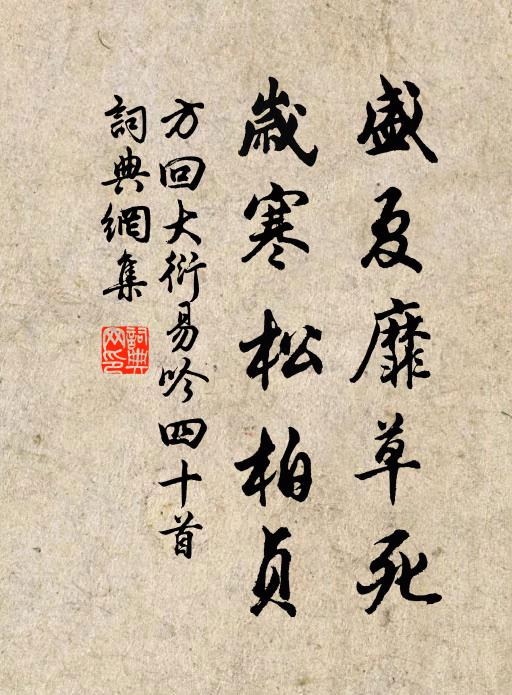 盛夏靡草死
歲寒松柏貞
方回大衍易吟四十首
詞典網集
詞典网印